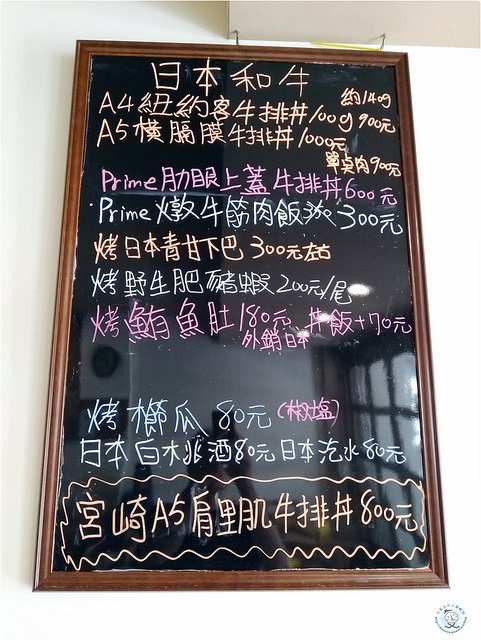 日本和牛
約140g
A4紐約客牛排丼100g 900元
A5橫膈膜牛排丼1000元
單桌肉900元
Prime肋眼上蓋牛排丼600元
Prime燉牛筋肉飯 300元
烤日本青甘下巴 300元左右
烤野生肥豬蝦 200元/尾
烤鮪魚肚 180元 丼飯+70元
外銷日本
烤櫛瓜 80元 (椒塩)
日本白木兆酒80元 日本汽水80元
宮崎A5肩里肌牛排丼800元